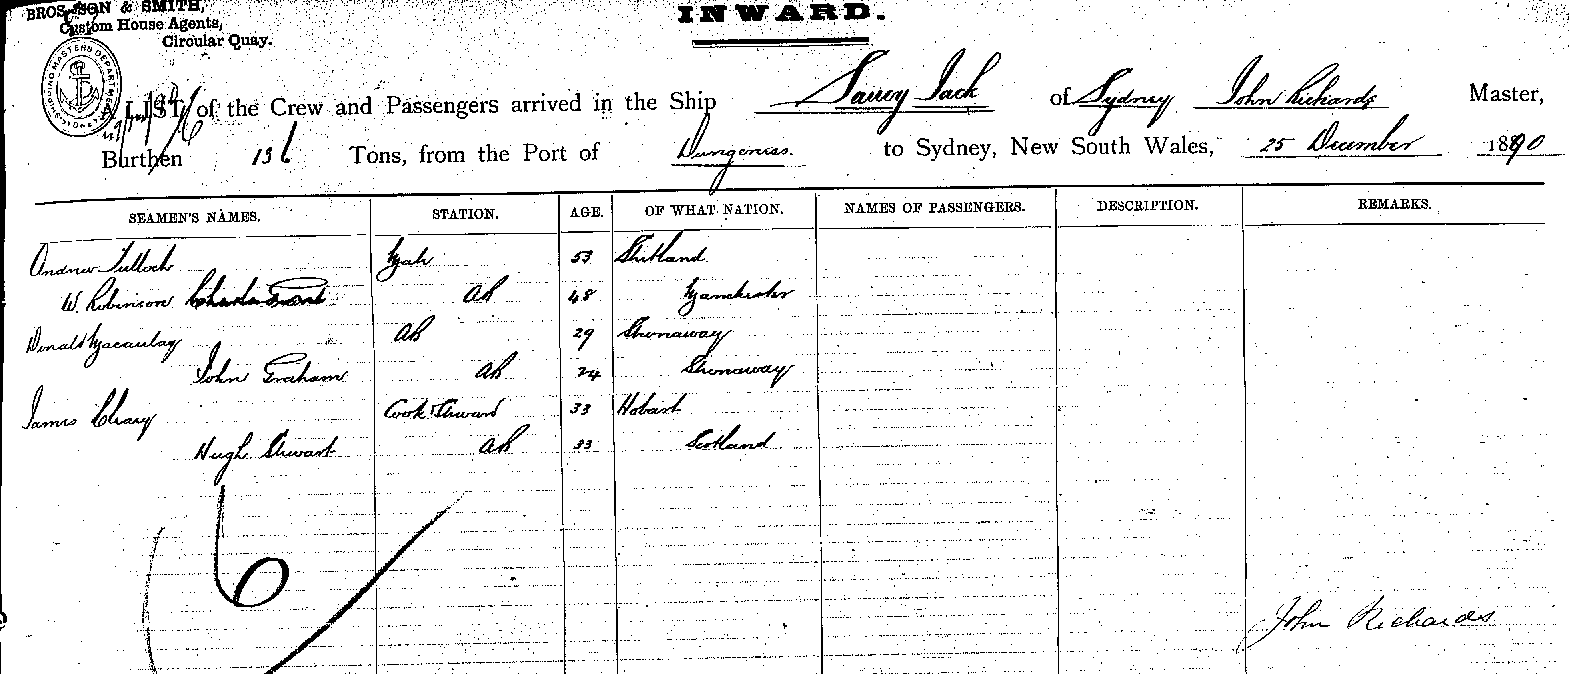 BROS & SMITH,
Custom House Agents,
Circular Quay.
INWARD.
LIST of the Crew and Passengers arrived in the Ship Saucy Jack of Sydney John Richards Master,
Burthen 136 Tons, from the Port of Dungeness. to Sydney, New South Wales, 25 December 1890
SEAMEN'S NAMES. STATION. AGE. OF WHAT NATION. NAMES OF PASSENGERS. DESCRIPTION. REMARKS.
Andrew Tulloch Mate 53 Shetland
W. Robinson AB 48 Manchester
Donald Macaulay AB 29 Stornaway
John Graham AB 24 Stornaway
James Cleary Cook & Steward 33 Hobart
Hugh Stewart AB 33 Scotland
6
John Richards